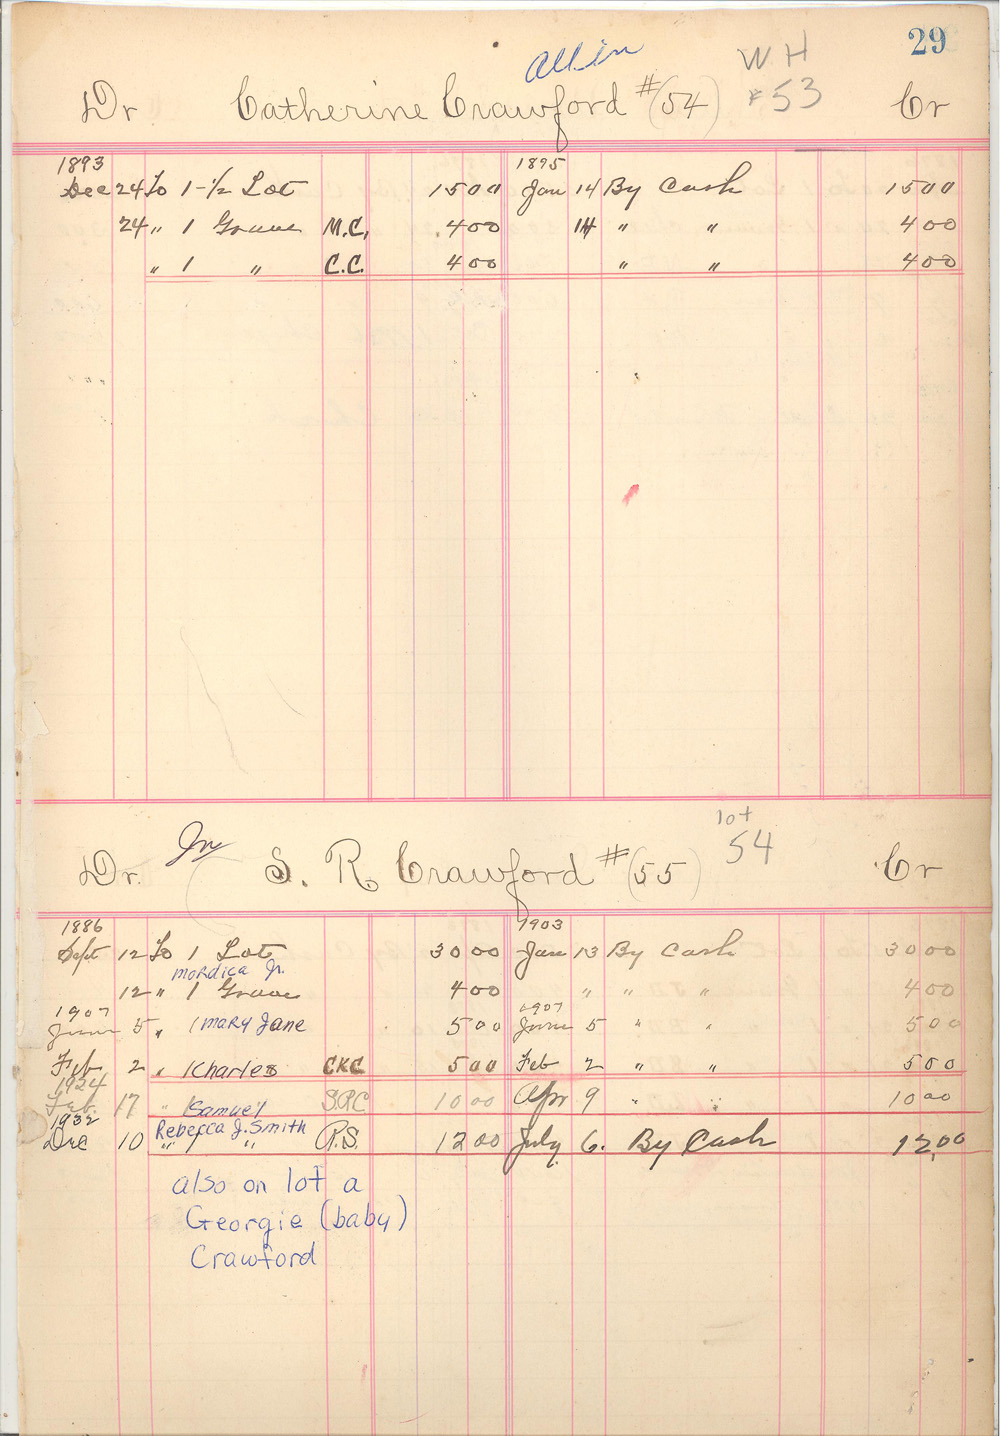 29
Allin
W H
Dr Catherine Crawford #(54) #53 Cr
1893 1895
Dec 24 To 1-1/2 Lot 15 00 Jan 14 By Cash 15 00
24 " 1 Grave M.C. 4 00 14 " " 4 00
" 1 " C.C. 4 00 " " 4 00
Jr lot
Dr. S. R Crawford #(55) 54 Cr
1886 1903
Sept 12 To 1 Lot 30 00 Jan 13 By Cash 30 00
Mordica Jr.
12 " 1 Grave 4 00 " " " 4 00
1907 1907
June 5 " 1 Mary Jane 5 00 June 5 " " 5 00
Feb 2 " 1 Charles CKC 5 00 Feb 2 " " 5 00
1924
Feb. 17 " 1 Samuel S.R.C 10 00 Apr 9 " " 10 00
1932 Rebecca J. Smith
Dec 10 " 1 " R.S. 12 00 July 6. By Cash 12,00
also on lot a
Georgie (baby)
Crawford